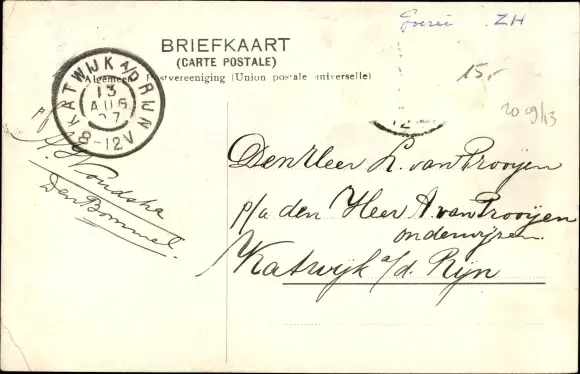 Goeree ZH
BRIEFKAART
(CARTE POSTALE)
Algemeene Postvereeniging (Union postale universelle)
15,-
20 09/13
KATWIJK A/D RIJN
13
AUG
07
8-12V
12
Den Heer L. van Prooijen
p/a den Heer A van Prooijen
onderwijzer.
Katwijk a/d. Rijn
Den Bommel.